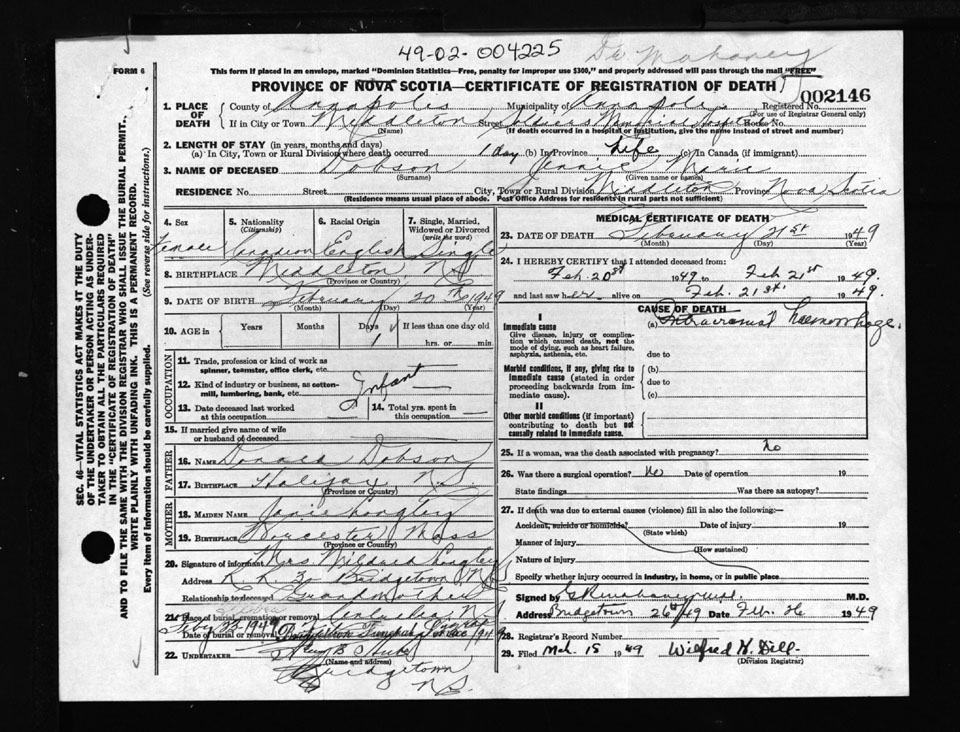 49-02-004225 Dr Mahaney
FORM 6
This form if placed in an envelope, marked "Dominion Statistics—Free, penalty for improper use $300," and properly addressed will pass through the mail "FREE"
PROVINCE OF NOVA SCOTIA—CERTIFICATE OF REGISTRATION OF DEATH
002146
1. PLACE OF DEATH
County of Annapolis Municipality of Annapolis Registered No.
(For use of Registrar General only)
If in City or Town Middleton Street Soldiers Memorial Hospital House No.
(Name) (If death occurred in a hospital or institution, give the name instead of street and number)
2. LENGTH OF STAY (in years, months and days)
(a) In City, Town or Rural Division where death occurred 1 day (b) In Province Life (c) In Canada (if immigrant)
3. NAME OF DECEASED Dobson Jennie Marie
(Surname) (Given name or names)
RESIDENCE No. Street City, Town or Rural Division Middleton Province Nova Scotia
(Residence means usual place of abode. Post Office Address for residents in rural parts not sufficient)
4. Sex Female
5. Nationality (Citizenship) Canadian
6. Racial Origin English
7. Single, Married, Widowed or Divorced (write the word) Single
8. BIRTHPLACE Middleton, N.S.
(Province or Country)
9. DATE OF BIRTH February 20th 1949
(Month) (Day) (Year)
10. AGE in Years Months Days 1 If less than one day old
hrs. or min.
OCCUPATION
11. Trade, profession or kind of work as spinner, teamster, office clerk, etc.
12. Kind of industry or business, as cotton-mill, lumbering, bank, etc. Infant
13. Date deceased last worked at this occupation
14. Total yrs. spent in this occupation
15. If married give name of wife or husband of deceased
FATHER
16. NAME Donald Dobson
17. BIRTHPLACE Halifax, N.S.
(Province or Country)
MOTHER
18. MAIDEN NAME Longley
19. BIRTHPLACE Worcester Mass
(Province or Country)
20. Signature of informant Mrs Mildred Longley
Address R.R. 3 Bridgetown, N.S.
Relationship to deceased Grandmother
21. Place of burial, cremation or removal
Date of burial or removal
22. UNDERTAKER
(Name and address)
Bridgetown
N.S.
MEDICAL CERTIFICATE OF DEATH
23. DATE OF DEATH February 21st 1949
(Month) (Day) (Year)
24. I HEREBY CERTIFY that I attended deceased from:
Feb. 20th 1949 to Feb 21st 1949.
and last saw her alive on Feb. 21st. 1949.
CAUSE OF DEATH
I
Immediate cause
Give disease, injury or complication which caused death, not the mode of dying, such as heart failure, asphyxia, asthenia, etc.
(a) Intracranial haemorrhage.
due to
Morbid conditions, if any, giving rise to immediate cause (stated in order proceeding backwards from immediate cause).
(b)
due to
(c)
II
Other morbid conditions (if important) contributing to death but not causally related to immediate cause.
25. If a woman, was the death associated with pregnancy? No
26. Was there a surgical operation? No Date of operation 19
State findings Was there an autopsy?
27. If death was due to external causes (violence) fill in also the following:—
Accident, suicide or homicide? Date of injury 19
(State which)
Manner of injury
(How sustained)
Nature of injury
Specify whether injury occurred in industry, in home, or in public place
Signed by M.D.
Address Bridgetown 26th/49 Date Feb. 26 1949
28. Registrar's Record Number
29. Filed Mch. 15 1949 Wilfred H. Dill
(Division Registrar)
SEC. 46—VITAL STATISTICS ACT MAKES IT THE DUTY OF THE UNDERTAKER OR PERSON ACTING AS UNDERTAKER TO OBTAIN ALL THE PARTICULARS REQUIRED IN THE "CERTIFICATE OF REGISTRATION OF DEATH" AND TO FILE THE SAME WITH THE DIVISION REGISTRAR WHO SHALL ISSUE THE BURIAL PERMIT.
WRITE PLAINLY WITH UNFADING INK. THIS IS A PERMANENT RECORD.
Every item of information should be carefully supplied. (See reverse side for instructions.)